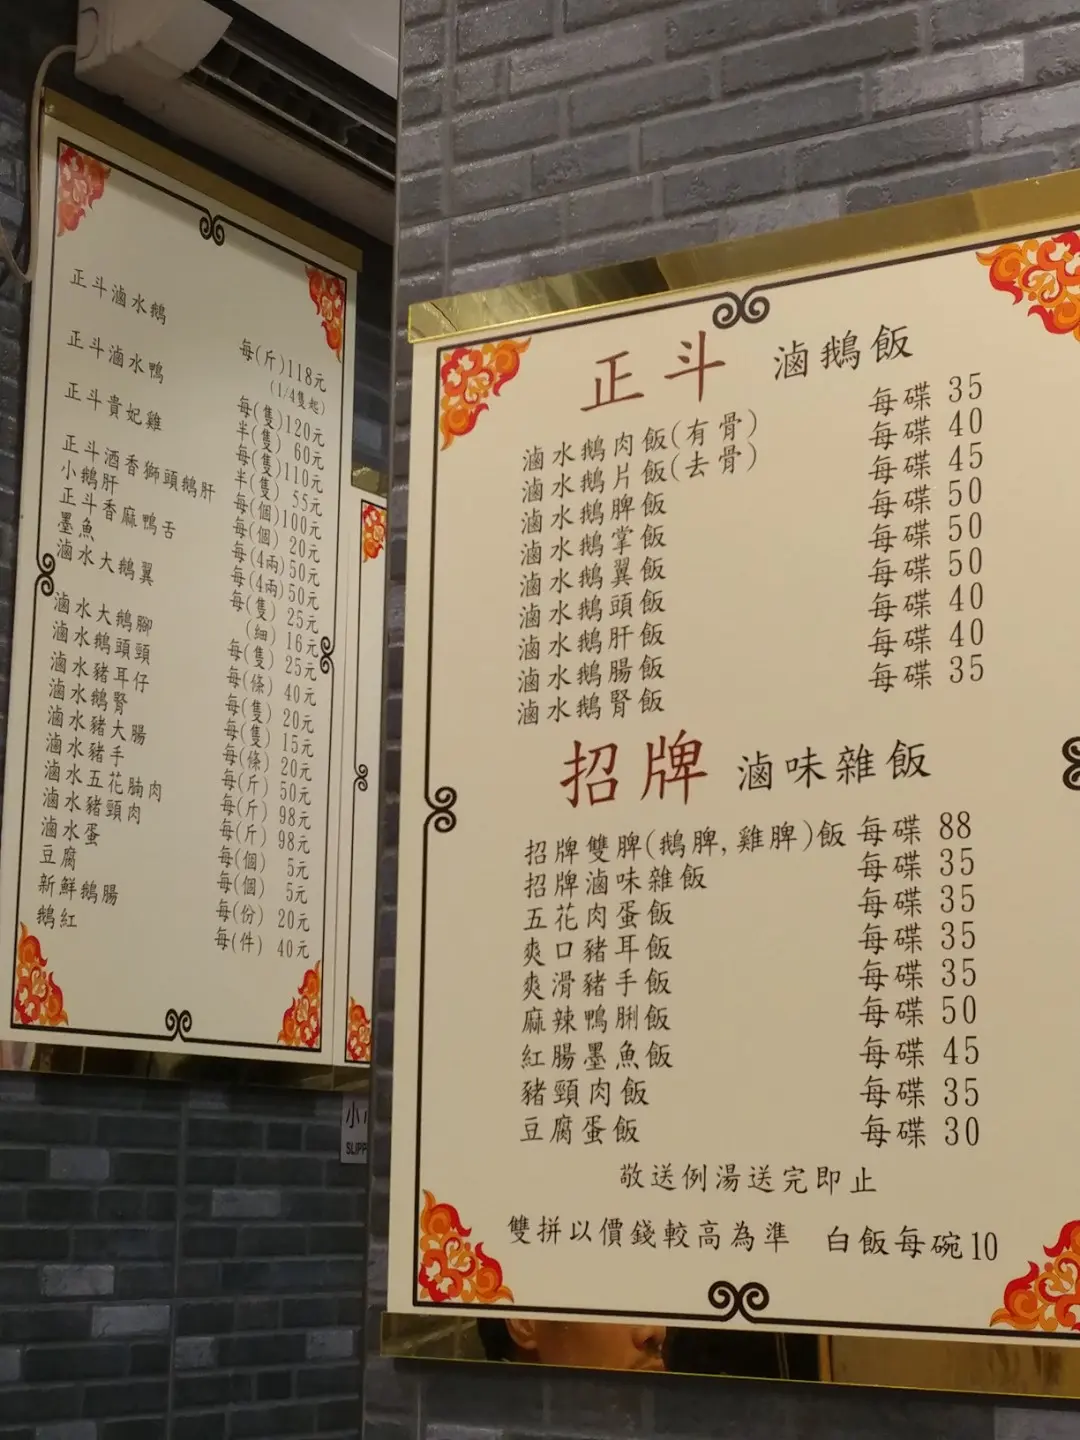 正斗滷水鵝 每(斤)118元
(1/4隻起)
正斗滷水鴨 每(隻)120元
半(隻) 60元
正斗貴妃雞 每(隻)110元
半(隻) 55元
正斗酒香獅頭鵝肝 每(個)100元
小鵝肝 每(個) 20元
正斗香麻鴨舌 每(4兩)50元
墨魚 每(4兩)50元
滷水大鵝翼 每(隻) 25元
(細) 16元
滷水大鵝腳 每(隻) 25元
滷水鵝頭頸 每(條) 40元
滷水豬耳仔 每(隻) 20元
滷水鵝腎 每(隻) 15元
滷水豬大腸 每(條) 20元
滷水豬手 每(斤) 50元
滷水五花腩肉 每(斤) 98元
滷水豬頸肉 每(斤) 98元
滷水蛋 每(個) 5元
豆腐 每(個) 5元
新鮮鵝腸 每(份) 20元
鵝紅 每(件) 40元
小心
SLIPP
正斗 滷鵝飯
滷水鵝肉飯(有骨) 每碟 35
滷水鵝片飯(去骨) 每碟 40
滷水鵝脾飯 每碟 45
滷水鵝掌飯 每碟 50
滷水鵝翼飯 每碟 50
滷水鵝頭飯 每碟 50
滷水鵝肝飯 每碟 40
滷水鵝腸飯 每碟 40
滷水鵝腎飯 每碟 35
招牌 滷味雜飯
招牌雙脾(鵝脾,雞脾)飯 每碟 88
招牌滷味雜飯 每碟 35
五花肉蛋飯 每碟 35
爽口豬耳飯 每碟 35
爽滑豬手飯 每碟 35
麻辣鴨脷飯 每碟 50
紅腸墨魚飯 每碟 45
豬頸肉飯 每碟 35
豆腐蛋飯 每碟 30
敬送例湯送完即止
雙拼以價錢較高為準 白飯每碗10